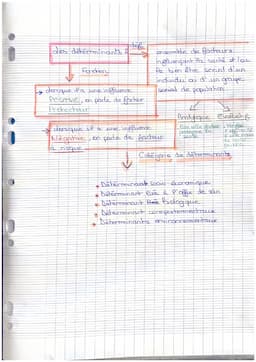 Les déterminants
Déf
ensemble de facteurs
influençant la santé et/ou
le bien être social d'un
individu ou d'un groupe
social de population
Fonction
→ lorsque il a une influence
Positive, on parle de facteur
Protecteur
→ lorsque il a une influence
Négative, on parle de facteur
à risque
Analytique
Catégorie de déterminants
• Déterminant socio-économique
• Déterminant liés à l'offre de soin
• Déterminant Biologique
• Déterminant comportementaux
• Déterminants environnementaux